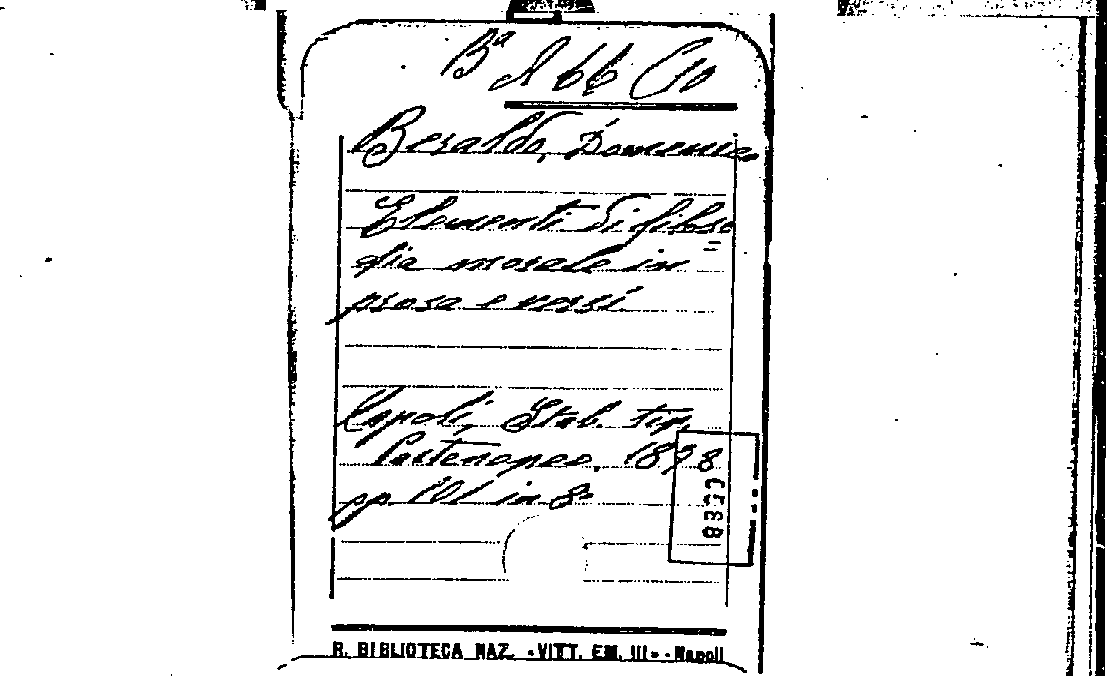 Bª
66 (10
Beraldo, Domenico
Elementi di filoso=
fia morale in
prosa e versi
Napoli, Stab. tip.
Partenopeo, 1898
pp 101 in 8º
R. BIBLIOTECA NAZ. - VITT. EM. III - Napoli